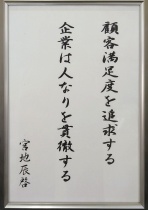 顧客満足度を追求する
企業は人なりを貫徹する
宮地辰啓